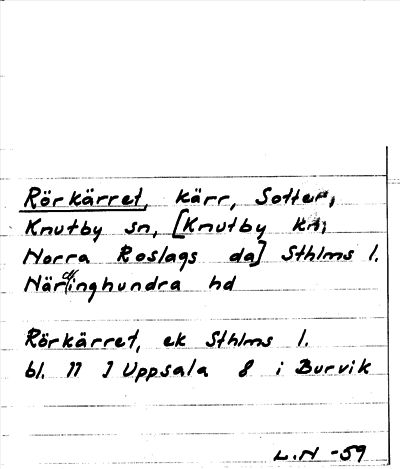 Rörkärret, kärr, Sottur,
Knutby sn, [Knutby kn,
Norra Roslags da] Sthlms l.
Närdinghundra hd
Rörkärret, ek Sthlms l.
bl. 11 I Uppsala 8 i Burvik
L.N -59